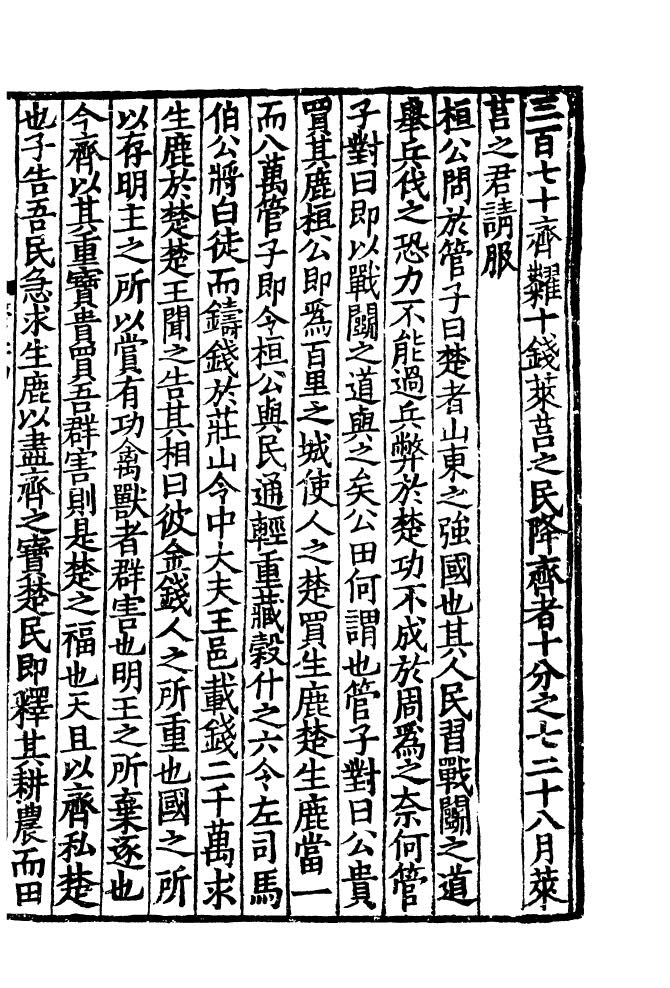 三百七十齊糶十錢萊莒之民降齊者十分之七二十八月萊
莒之君請服
桓公問於管子曰楚者山東之強國也其人民習戰鬭之道
舉兵伐之恐力不能過兵弊於楚功不成於周爲之奈何管
子對曰即以戰鬭之道與之矣公曰何謂也管子對曰公貴
買其鹿桓公即爲百里之城使人之楚買生鹿楚生鹿當一
而八萬管子即令桓公與民通輕重藏穀什之六令左司馬
伯公將白徒而鑄錢於莊山令中大夫王邑載錢二千萬求
生鹿於楚楚王聞之告其相曰彼金錢人之所重也國之所
以存明主之所以賞有功禽獸者群害也明王之所棄逐也
今齊以其重寶貴買吾群害則是楚之福也天且以齊私楚
也子告吾民急求生鹿以盡齊之寶楚民即釋其耕農而田